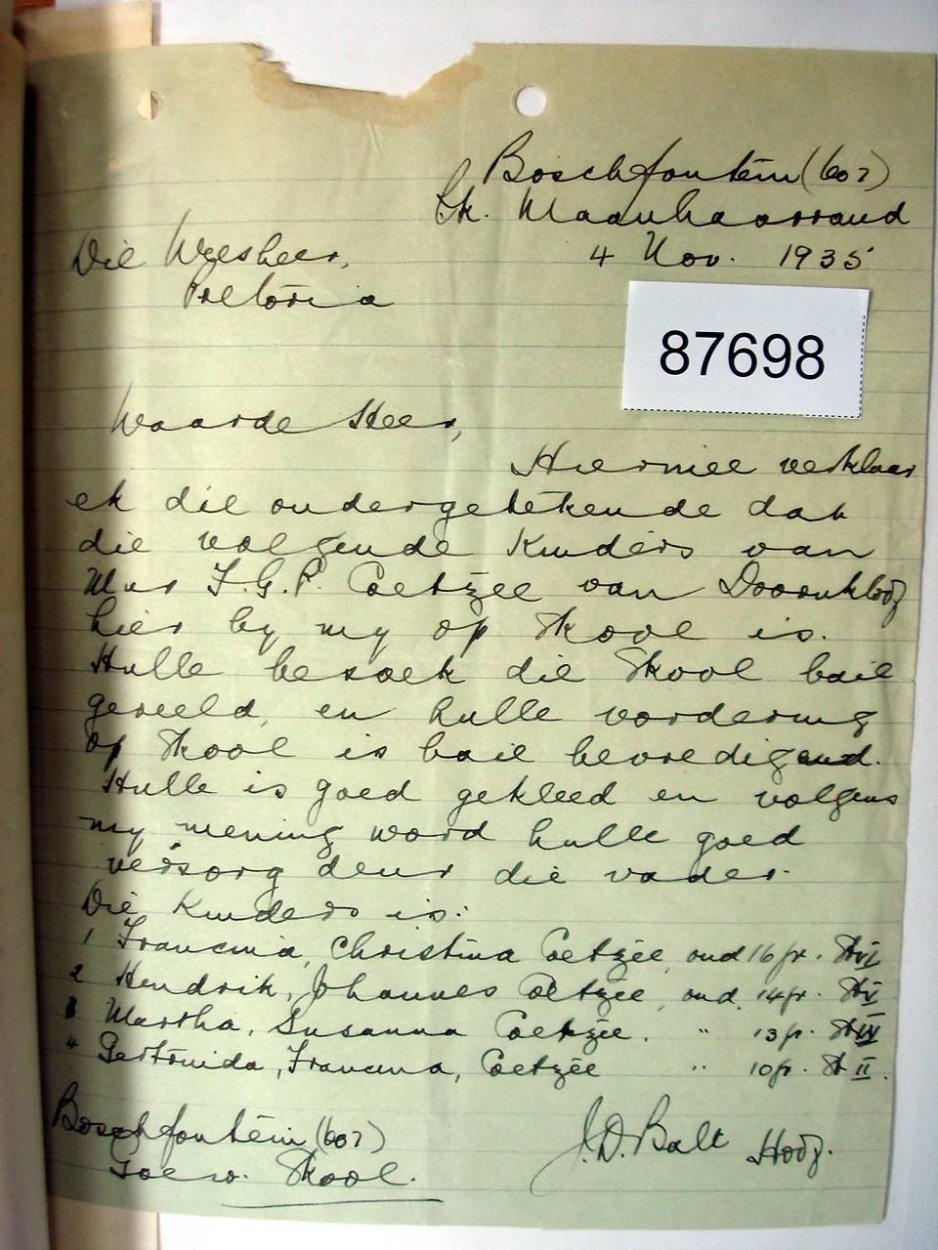 Boschfontein (602)
Sk. Maanhaarrand
4 Nov. 1935
Die Weesheer,
Pretoria
87698
Waarde Heer,
Hiermee verklaar
ek die ondergetekende dat
die volgende Kinders van
Mnr F.G.P. Coetzee van Doornkloof
hier by my op Skool is.
Hulle besoek die Skool baie
gereeld, en hulle vordering
op Skool is baie bevredigend.
Hulle is goed gekleed en volgens
my mening word hulle goed
versorg deur die vader.
Die Kinders is:
1 Francina, Christina Coetzee, oud 16 jr. St VI
2 Hendrik, Johannes Coetzee, oud 14 jr. St V
3 Martha, Susanna Coetzee. " 13 jr. St IV
4 Gertruida, Francina, Coetzee " 10 jr. St II.
Boschfontein (602)
Goew. Skool.
J.D. Balt Hoof.